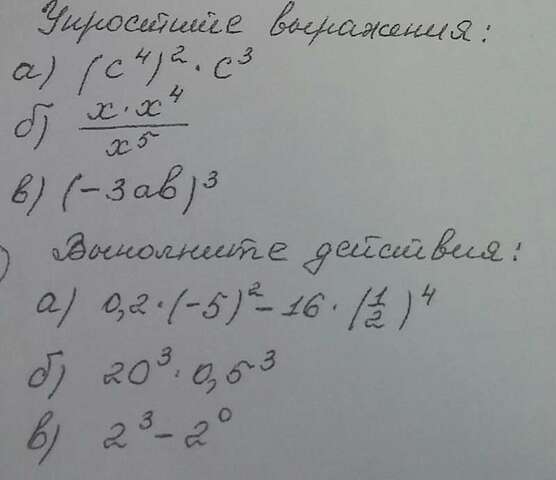 Упростите выражения:
а) (c⁴)² · c³
б) x · x⁴ / x⁵
в) (-3ab)³
) Выполните действия:
а) 0,2 · (-5)² - 16 · (1/2)⁴
б) 20³ · 0,5³
в) 2³ - 2⁰